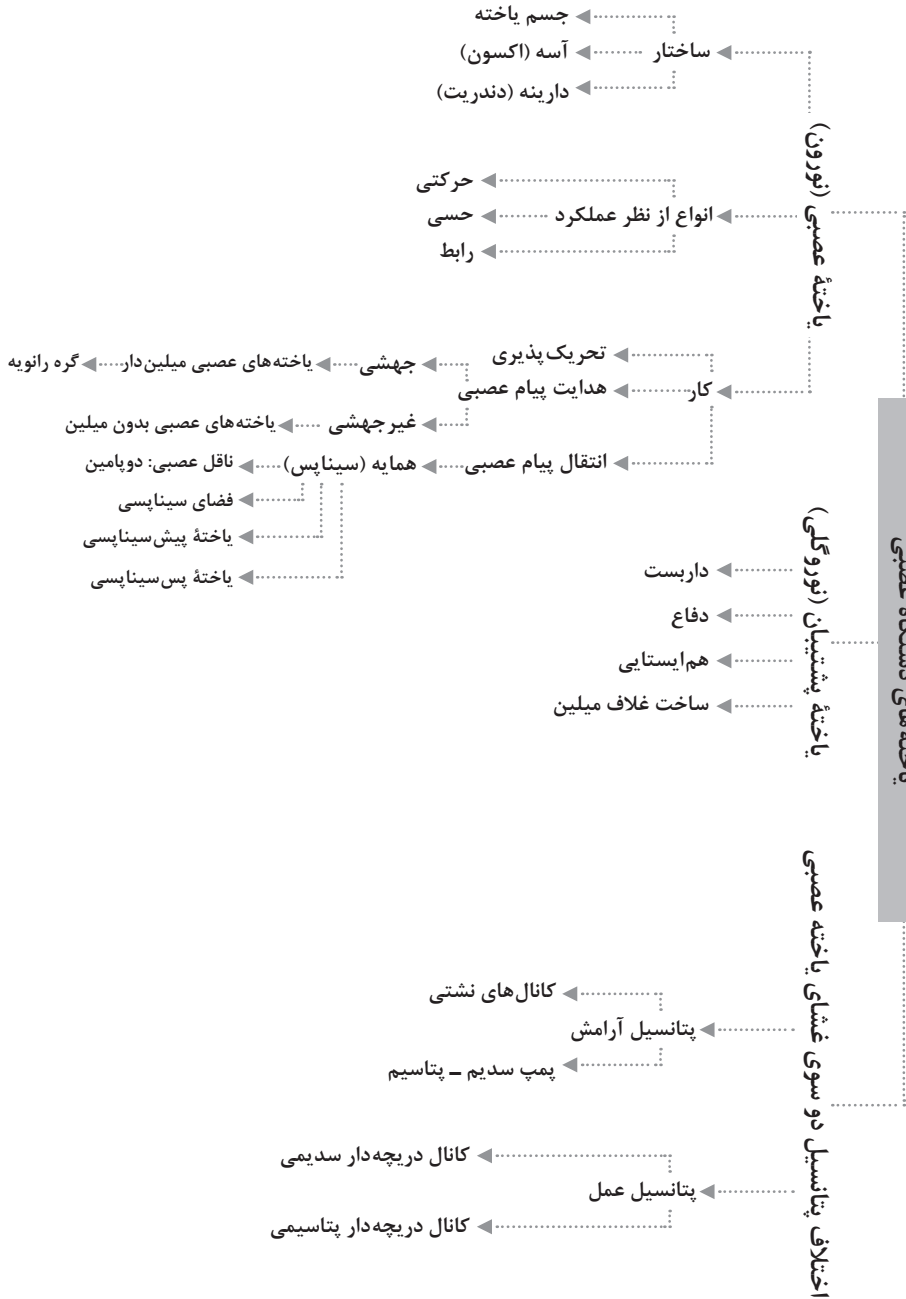 یاخته‌های دستگاه عصبی
یاختهٔ عصبی (نورون)
ساختار
جسم یاخته
آسه (اکسون)
دارینه (دندریت)
انواع از نظر عملکرد
حرکتی
حسی
رابط
کار
تحریک‌پذیری
هدایت پیام عصبی
جهشی
یاخته‌های عصبی میلین‌دار
گره رانویه
غیر جهشی
یاخته‌های عصبی بدون میلین
انتقال پیام عصبی
همایه (سیناپس)
ناقل عصبی: دوپامین
فضای سیناپسی
یاختهٔ پیش‌سیناپسی
یاختهٔ پس‌سیناپسی
یاختهٔ پشتیبان (نوروگلی)
داربست
دفاع
هم‌ایستایی
ساخت غلاف میلین
اختلاف پتانسیل دو سوی غشای یاخته عصبی
پتانسیل آرامش
کانال‌های نشتی
پمپ سدیم ـ پتاسیم
پتانسیل عمل
کانال دریچه‌دار سدیمی
کانال دریچه‌دار پتاسیمی